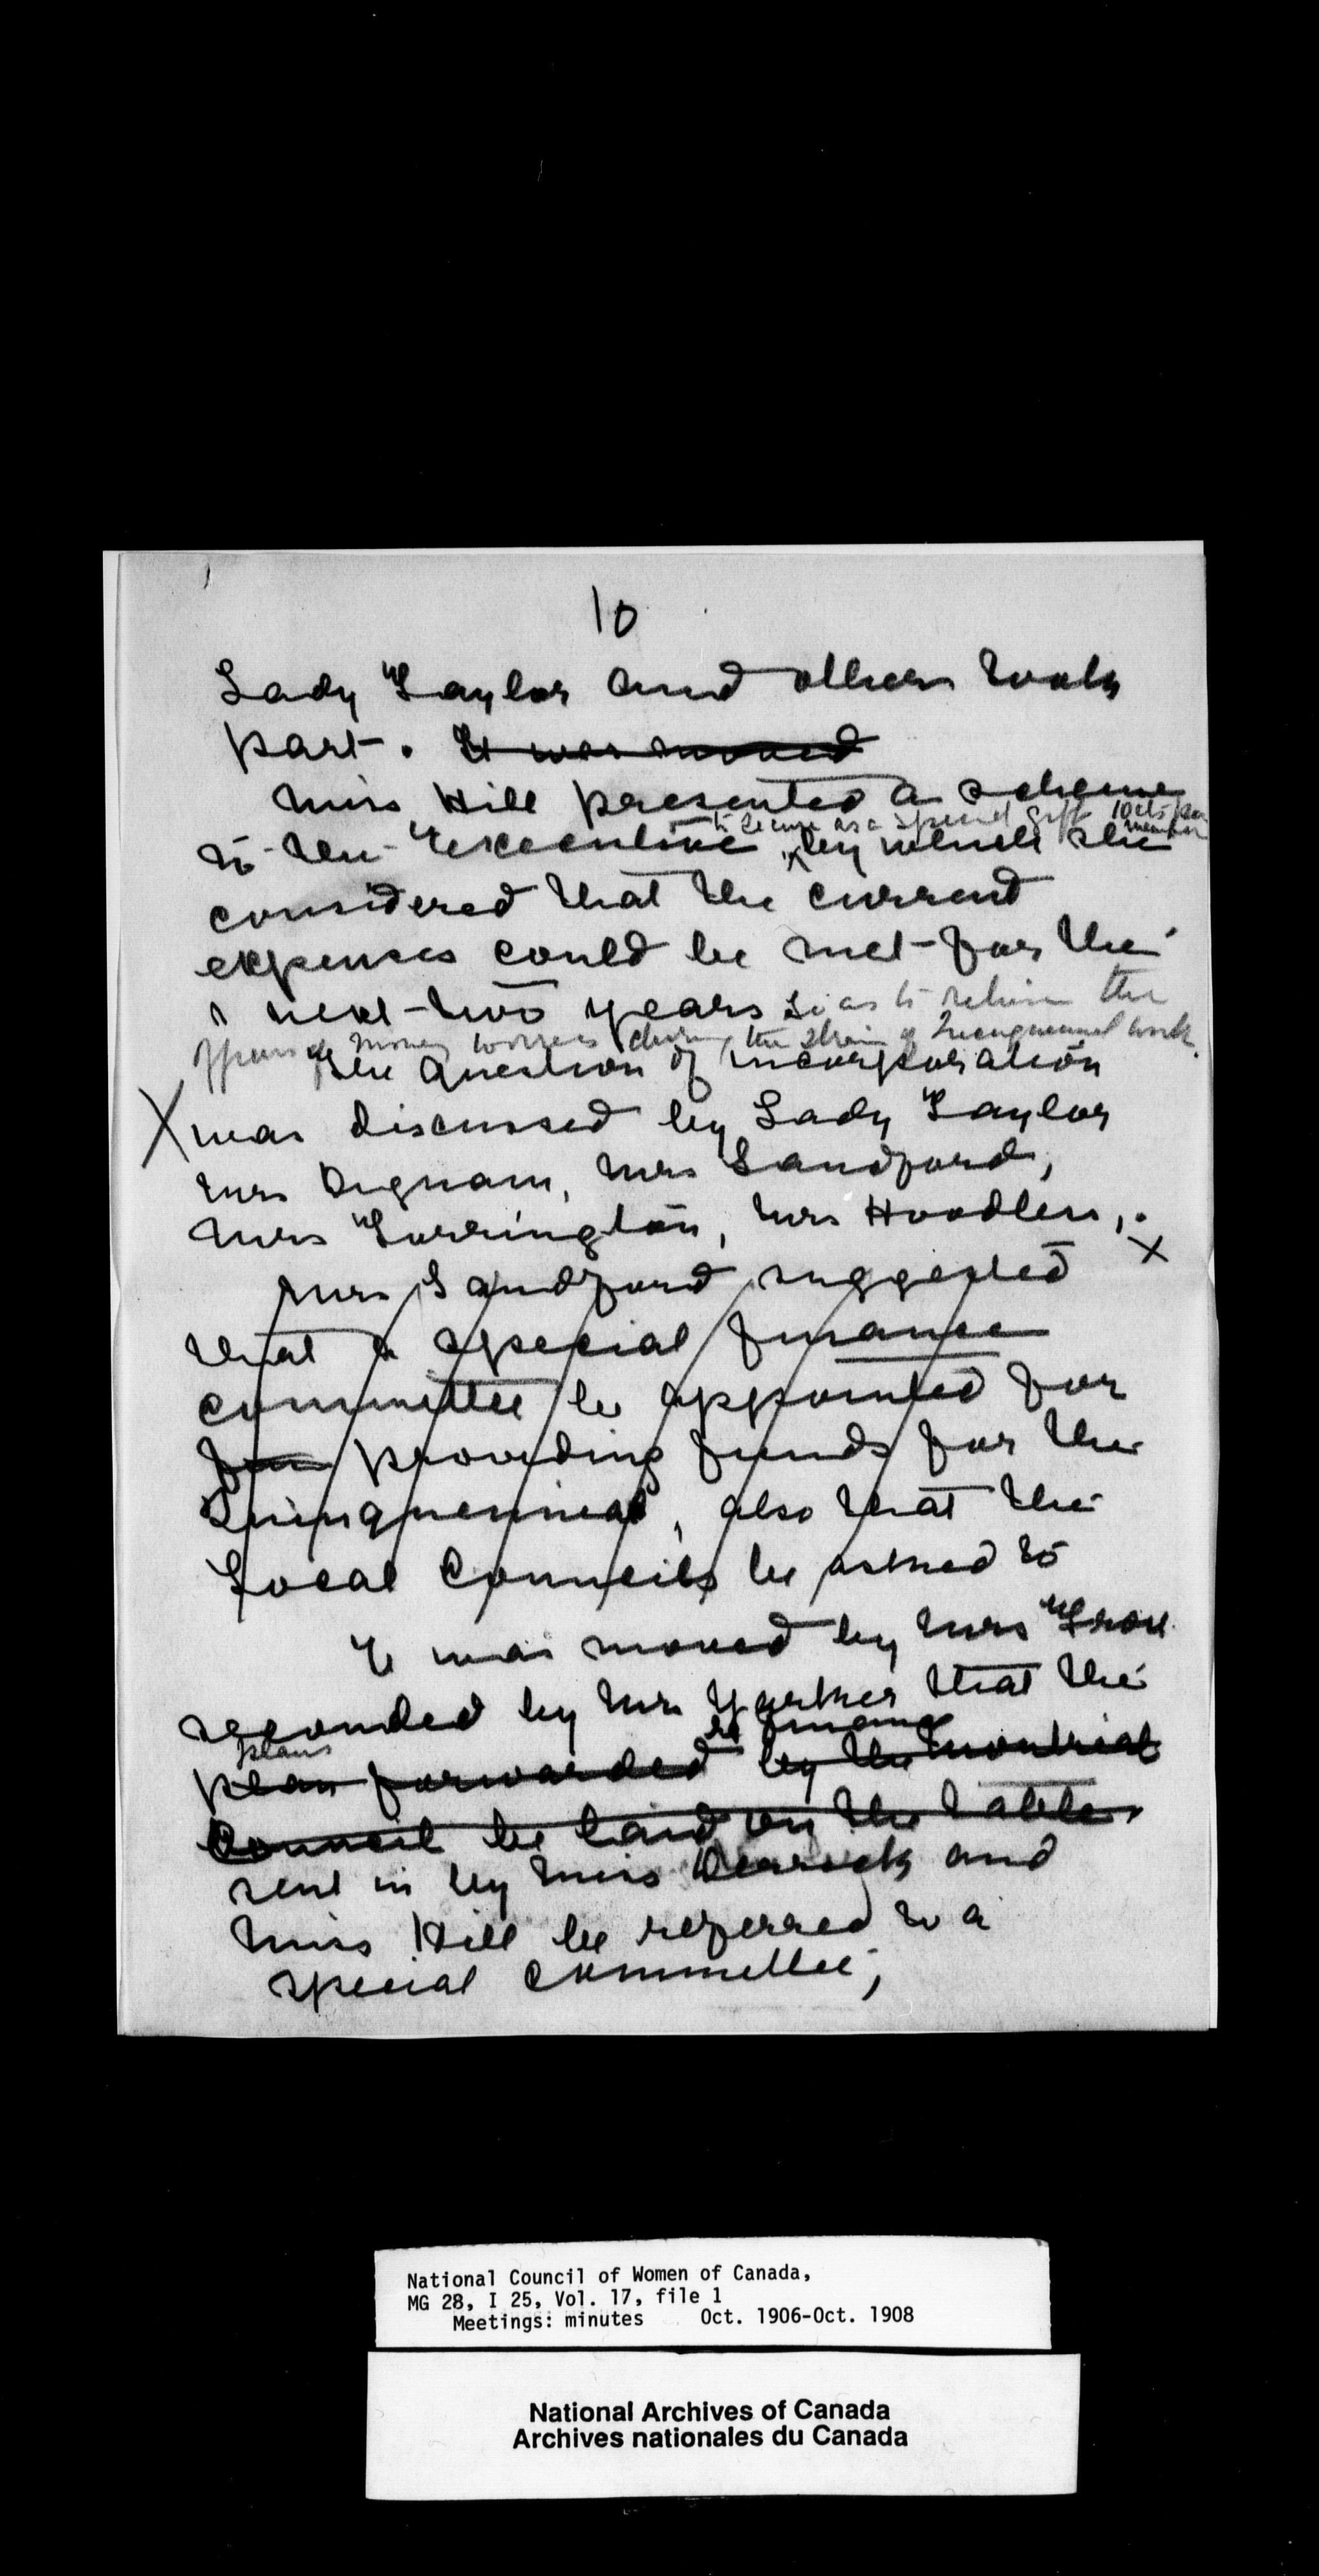 10
Lady Taylor and others took
part. It was moved
Miss Hill presented a scheme
to secure as a special gift 10cts per member
to the Executive by which she
considered that the current
expenses could be met for the
next two years so as to relieve the
of money worries during the strain of Quinquennial work.
The Question of incorporation
X was discussed by Lady Taylor
Mrs Dignam, Mrs Sandford,
Mrs Torrington, Mrs Hoodless, .
X
Mrs Sandford suggested
that a special finance
committee be appointed for
providing funds for the
Quinquennial, also that the
Local Councils be asked to
It was moved by Mrs
seconded by Mrs Yarker that the
plans re finance
plan forwarded by the Montreal
Council be laid on the table.
sent in by Miss Derrick and
Miss Hill be referred to a
special committee;
National Council of Women of Canada,
MG 28, I 25, Vol. 17, file 1
Meetings: minutes Oct. 1906-Oct. 1908
National Archives of Canada
Archives nationales du Canada